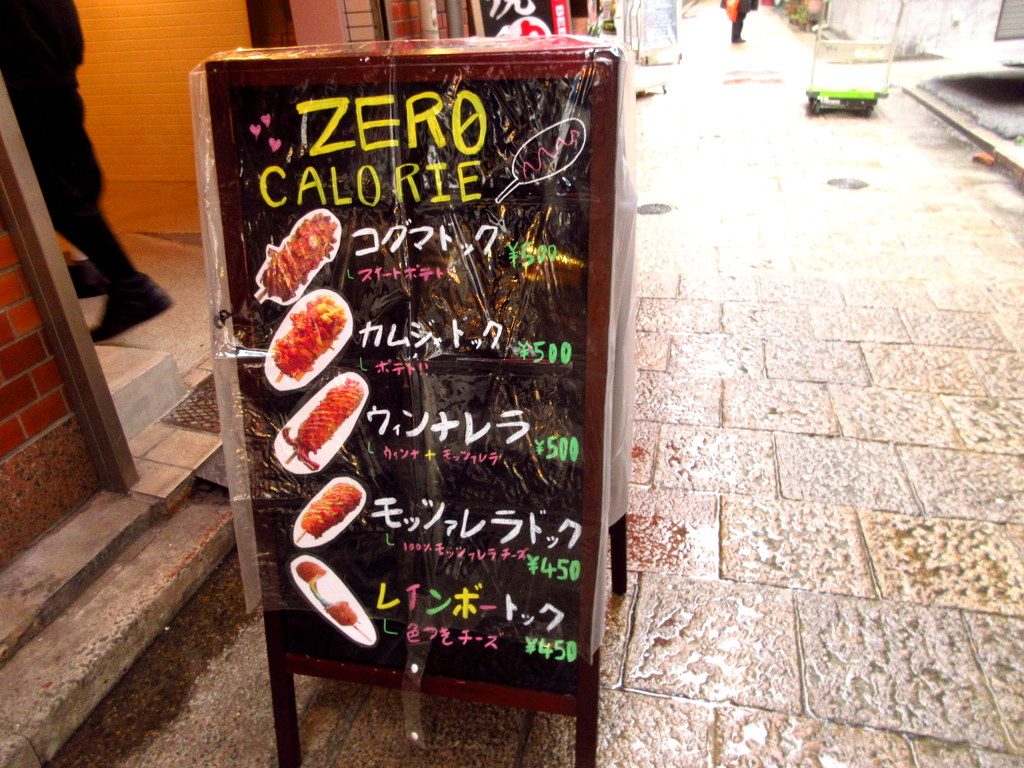 ZERO
CALORIE
コグマドック ¥500
スイートポテト
カムジャトック ¥500
ポテト
ウィンナレラ ¥500
ウィンナ + モッツァレラ
モッツァレラドック
100%モッツァレラチーズ ¥450
レインボートック
色つきチーズ ¥450